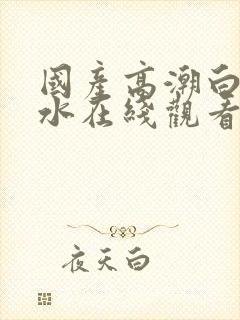 國產高潮白
水在綫觀看
夜天白